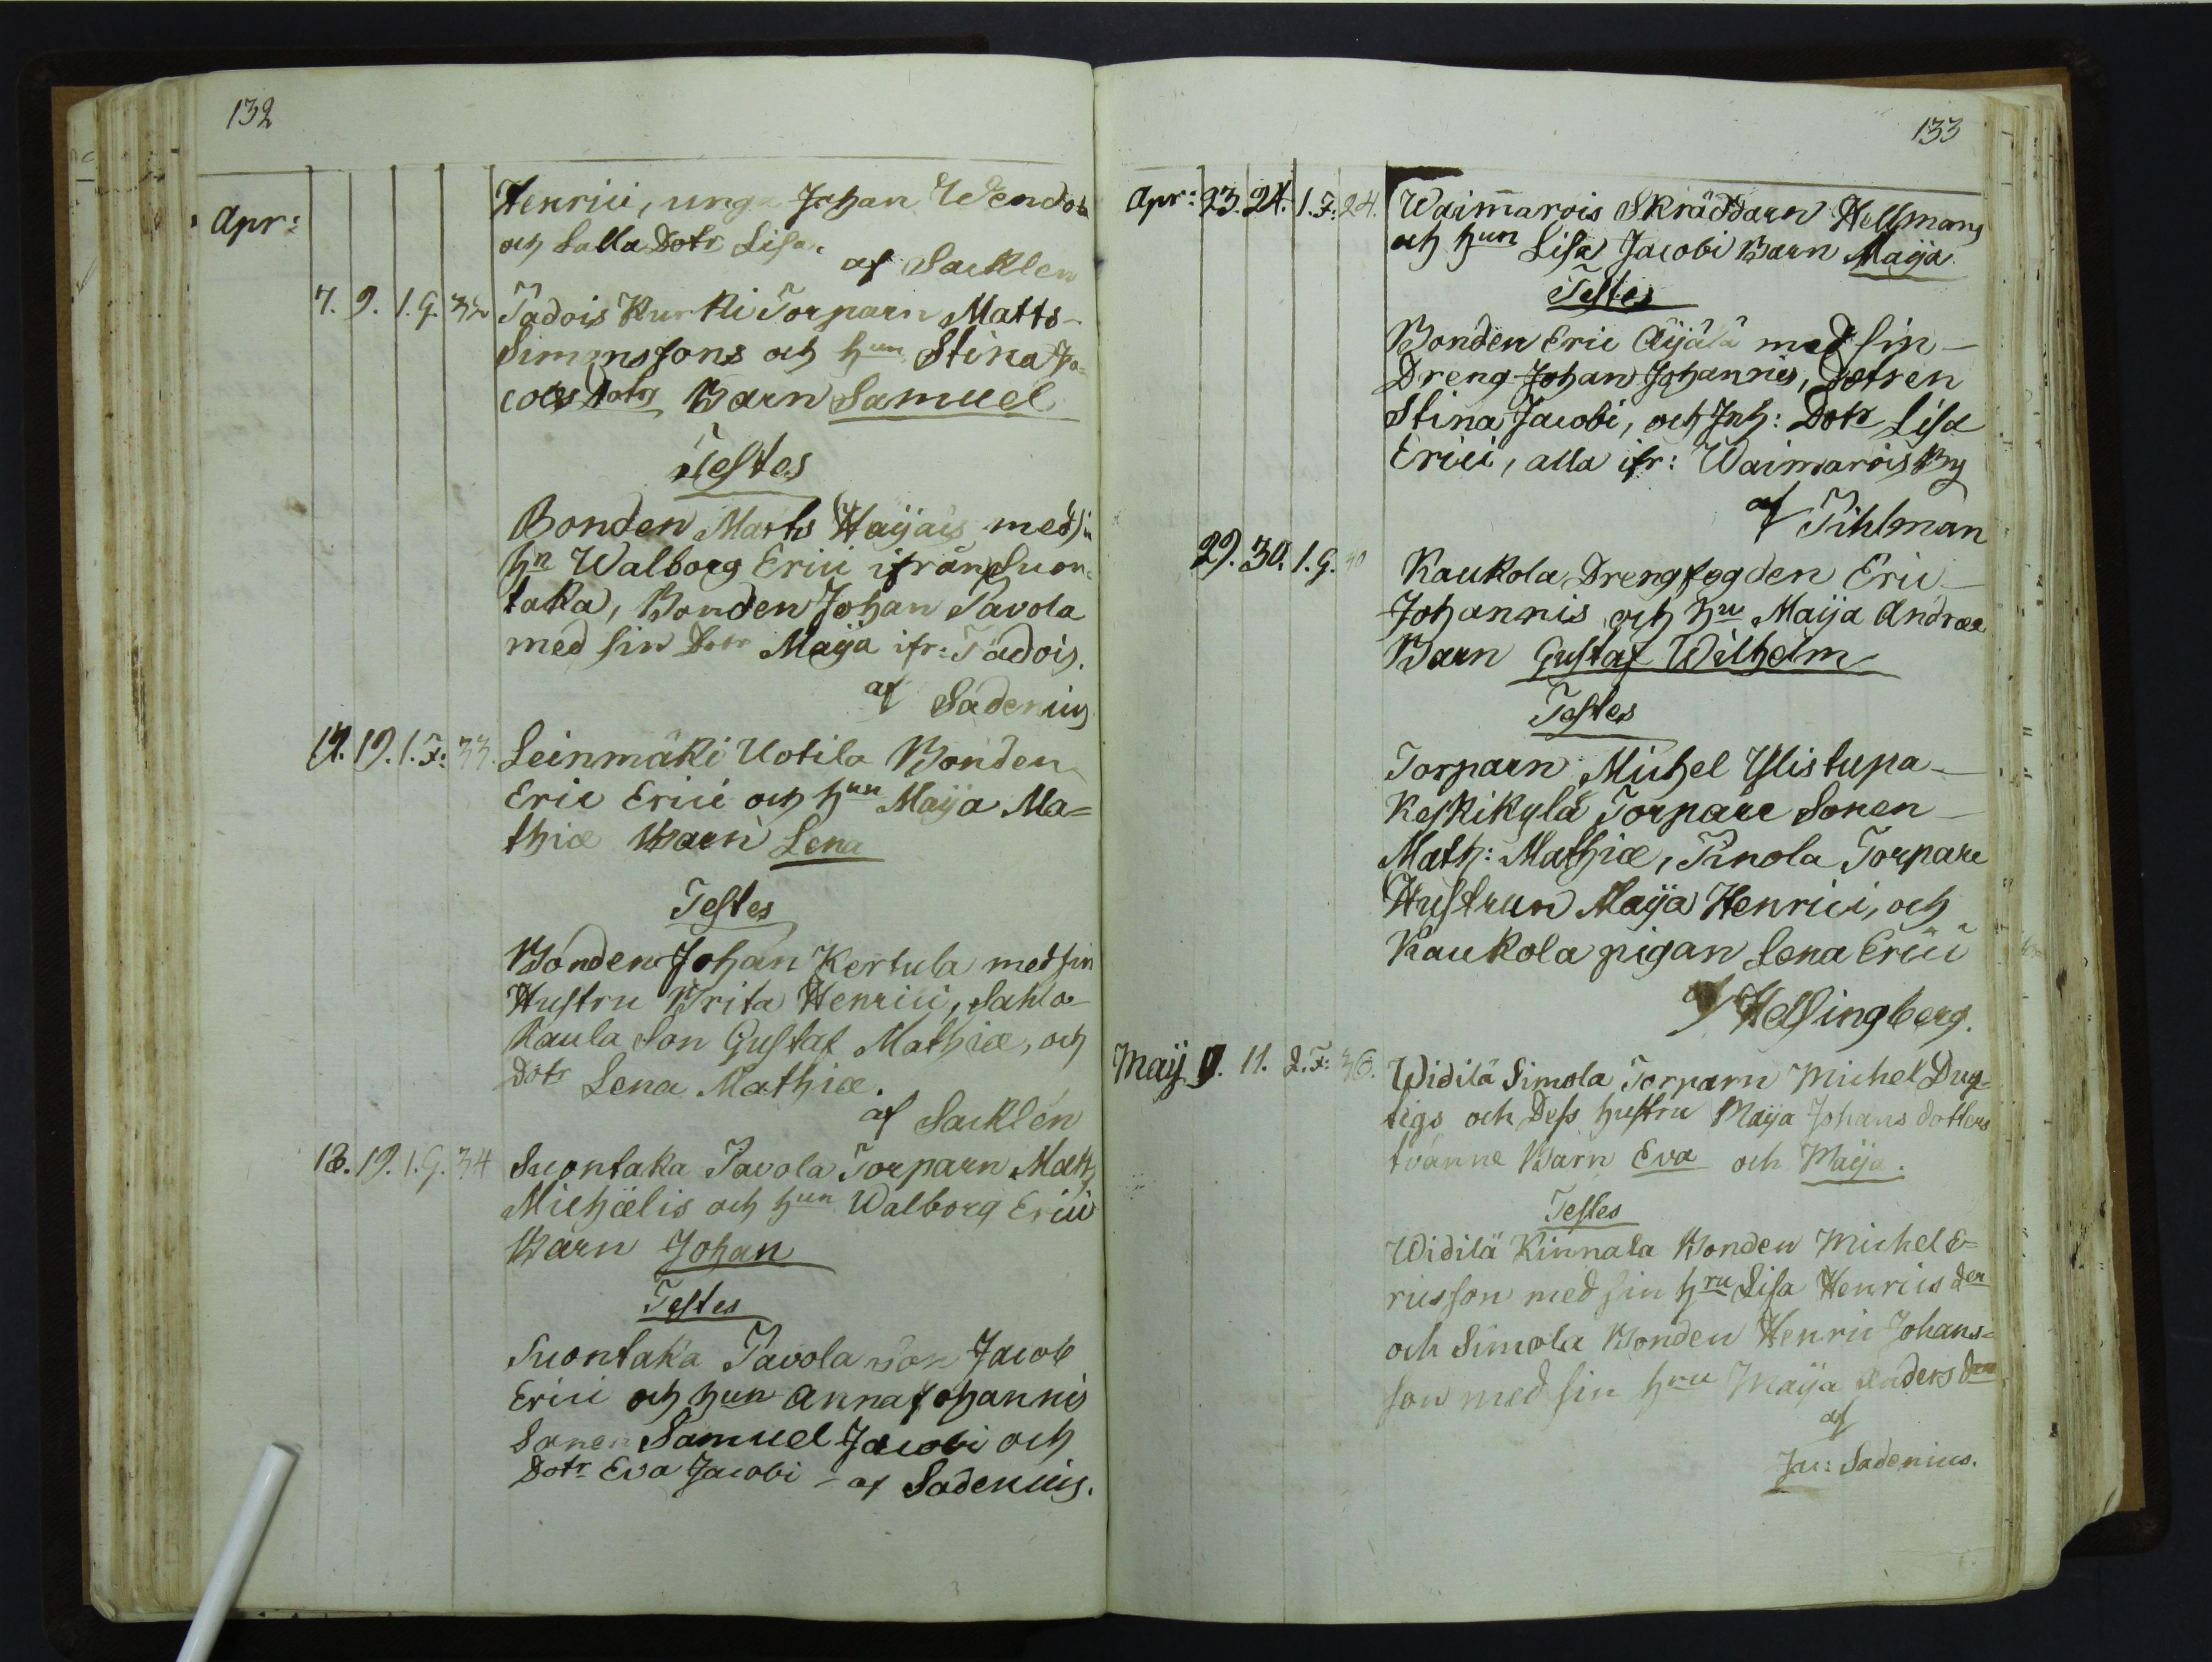 132
Apr:
Henrici, unga Johan Wendola
och Salla Dotr Lisa.
af Sacklen
7. 9. 1. G. 32 Tadois Kurki Torparn Matts
Simonssons och hun Stina Ja=
cobs Dotrs Barn Samuel
Testes
Bonden Matts Haijais med sin
hn Walborg Erici ifrån Suon=
taka, Bonden Johan Pavola
med sin Dotr Maija ifr: Tadois.
af Sadenius
17. 19. 1. F: 33. Leinmäki Uotila Bonden
Eric Erici och hun Maija Ma=
thiæ Barn Lena
Testes
Bonden Johan Kertula med sin
Hustru Brita Henrici, Sahla-
Kaula Son Gustaf Mathiæ, och
Dotr Lena Mathiæ.
af Sacklén
18. 19. 1. G. 34 Suontaka Pavola Torparn Matts
Michælis och hun Walborg Erici
Barn Johan
Testes
Suontaka Pavola son Jacob
Erici och hun Anna Johannis
Sonen Samuel Jacobi och
Dotr Eva Jacobi - af Sadenius.
133
Apr: 23. 24. 1. F: 24. Waimarois Skräddarn Hellmans
och hun Lisa Jacobi Barn Maija
Testes
Bonden Eric Äijälä med sin
Dreng Johan Johannis, Dotren
Stina Jacobi, och Inh: Dotr Lisa
Erici, alla ifr: Waimarois By
af Pihlman
29. 30. 1. G. Kaukola Drengfogden Eric
Johannis och hu Maija Andreæ
Barn Gustaf Wilhelm
Testes
Torparn Michel Ylistupa
Keskikylä Torpare Sonen
Math: Mathiæ, Pinola Torpare
Hustrun Maija Henrici, och
Kaukola pigan Lena Erici
af Helsingberg.
Maij 9. 11. 2. F: 36. Widilä Simola Torparn Michel Dug=
tigs och Dess hustru Maija Johans dotters
tvänne Barn Eva och Maija.
Testes
Widilä Kinnala Bonden Michel E=
ricsson med sin hru Lisa Henrics der
och Simola Bonden Henric Johans=
son med sin hru Maija Anders der
af
Jac: Sadenius.